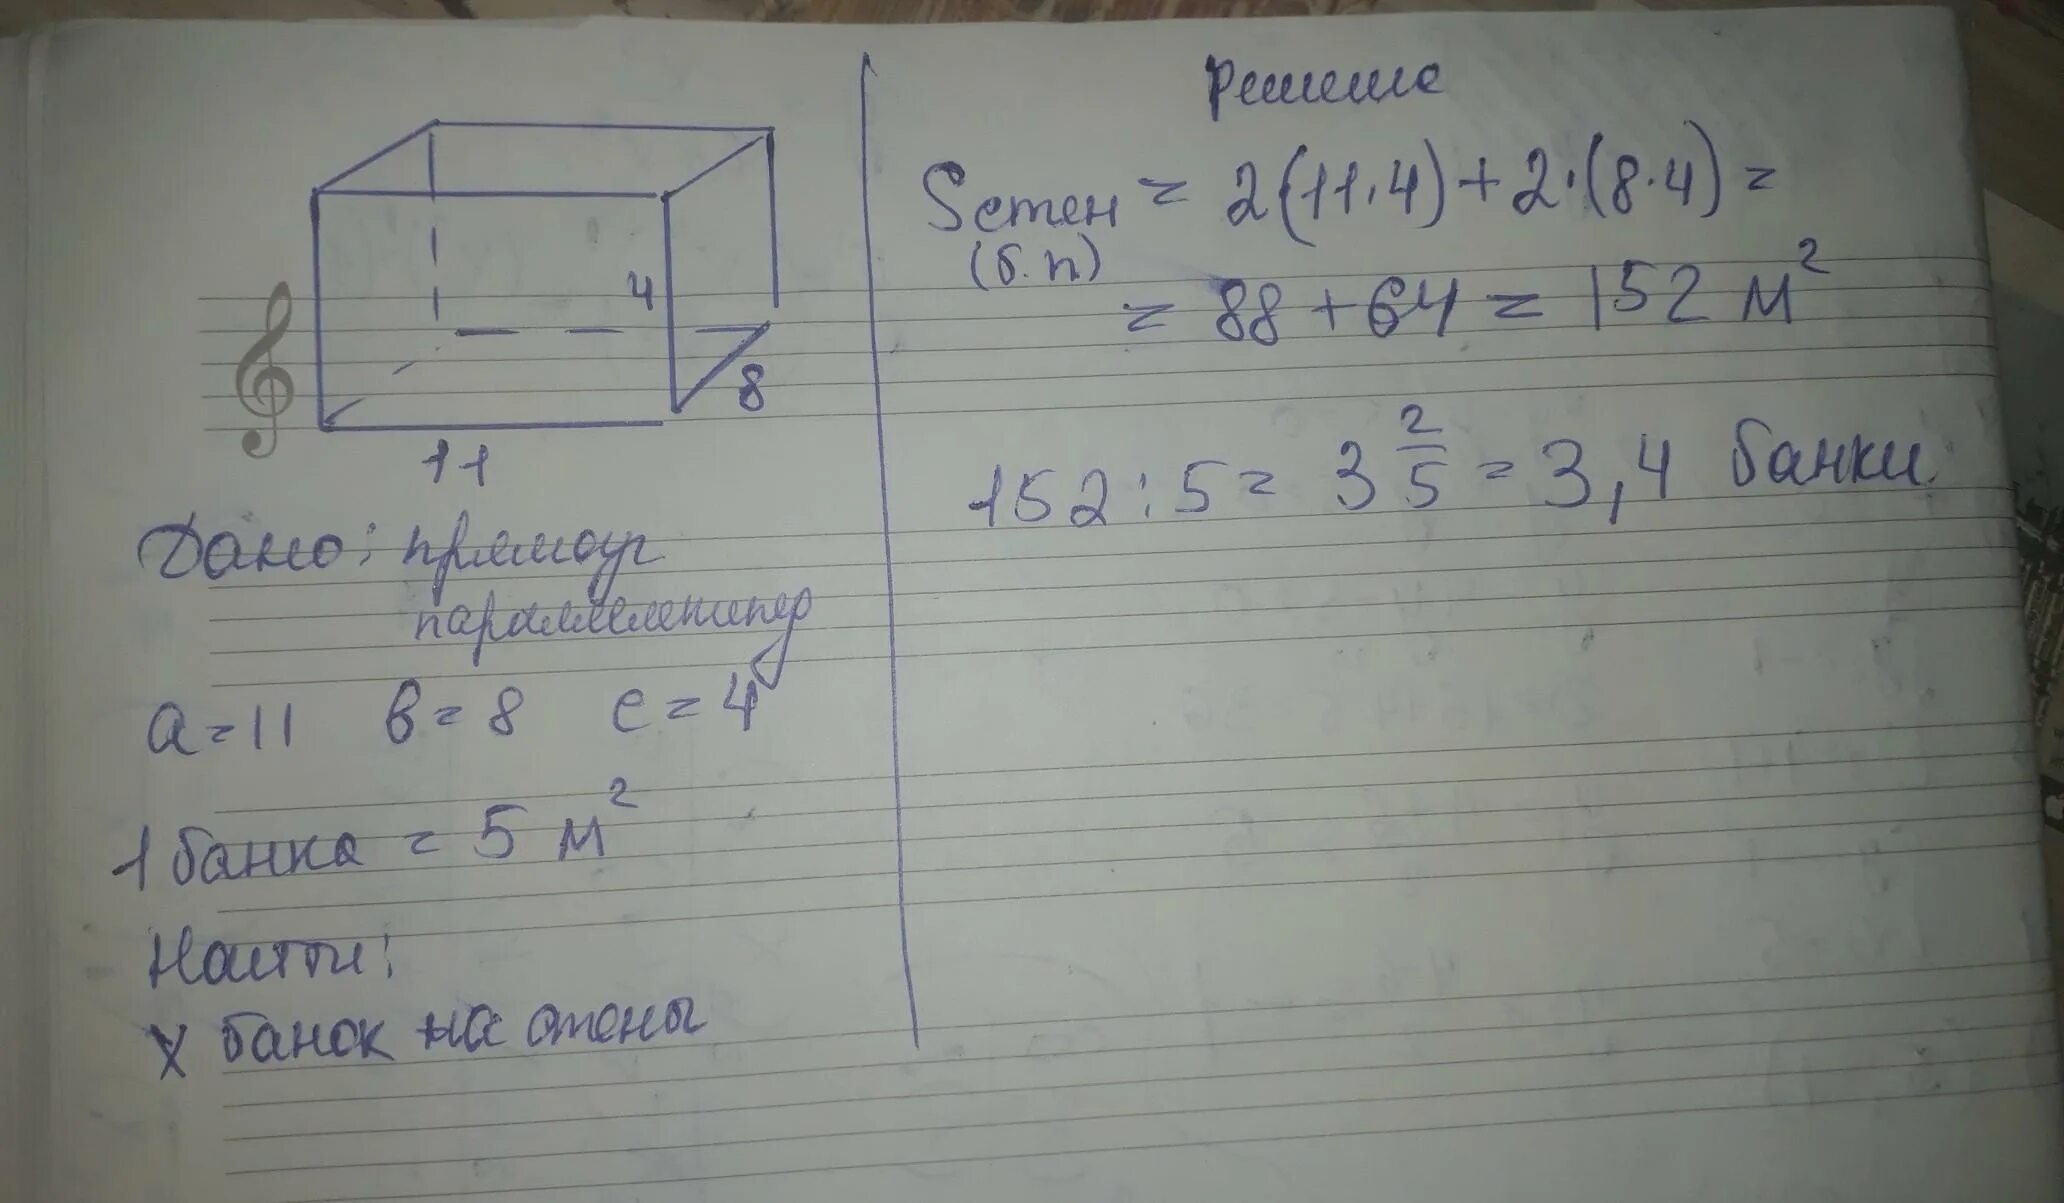 4
8
11
Дано: прямоуг
параллелепипед
a = 11 в = 8 с = 4
1 банка = 5 м²
Найти:
х банок на стены
Решение
Sстен = 2(11·4) + 2·(8·4) =
(б.п)
= 88 + 64 = 152 м²
152 : 5 = 3 2/5 = 3,4 банки.